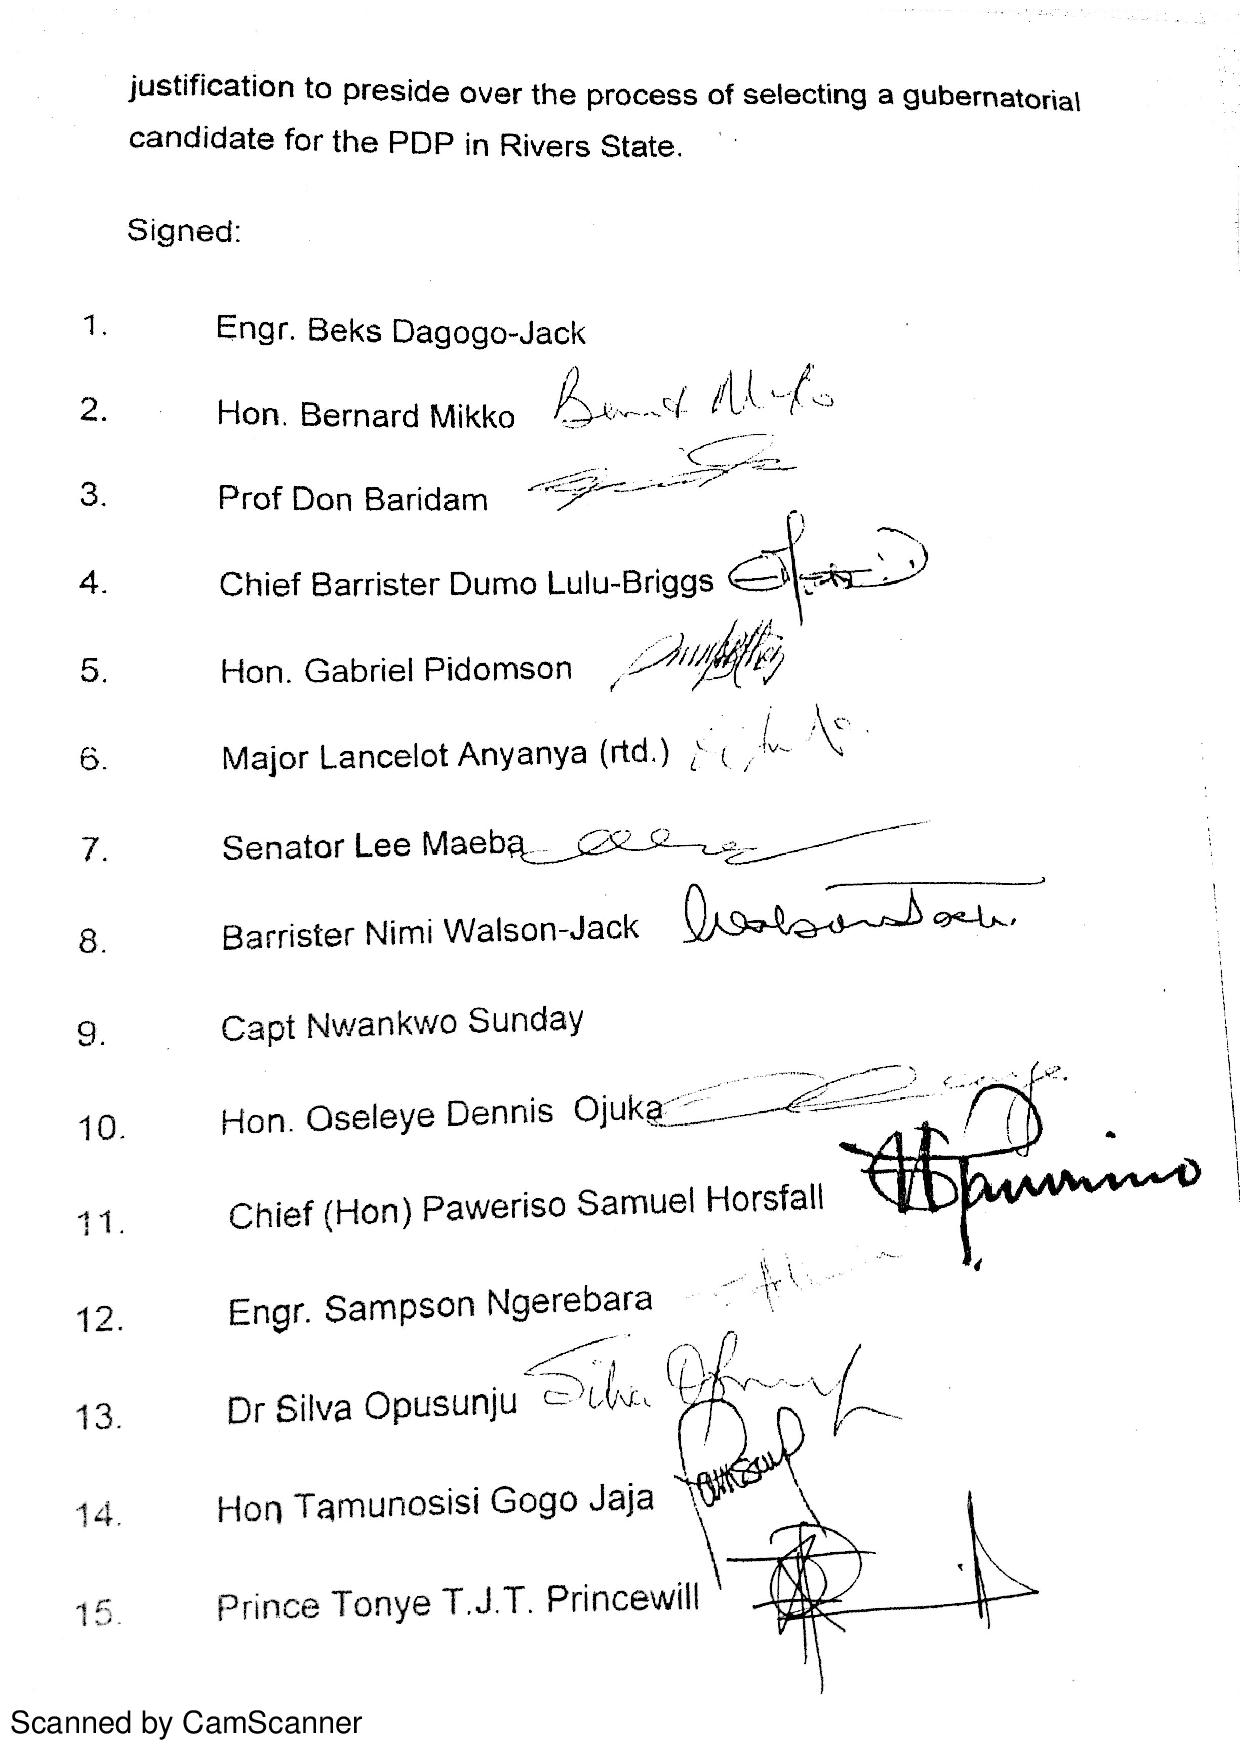 justification to preside over the process of selecting a gubernatorial
candidate for the PDP in Rivers State.
Signed:
1. Engr. Beks Dagogo-Jack
2. Hon. Bernard Mikko
3. Prof Don Baridam
4. Chief Barrister Dumo Lulu-Briggs
5. Hon. Gabriel Pidomson
6. Major Lancelot Anyanya (rtd.)
7. Senator Lee Maeba
8. Barrister Nimi Walson-Jack
9. Capt Nwankwo Sunday
10. Hon. Oseleye Dennis Ojuka
11. Chief (Hon) Paweriso Samuel Horsfall
12. Engr. Sampson Ngerebara
13. Dr Silva Opusunju Silva
14. Hon Tamunosisi Gogo Jaja
15. Prince Tonye T.J.T. Princewill
Scanned by CamScanner